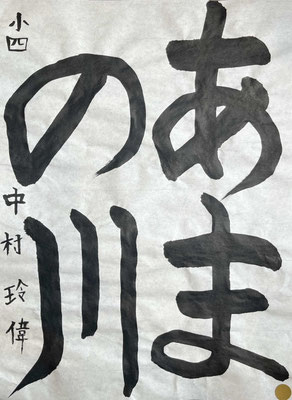 あま
の川
小四 中村玲偉